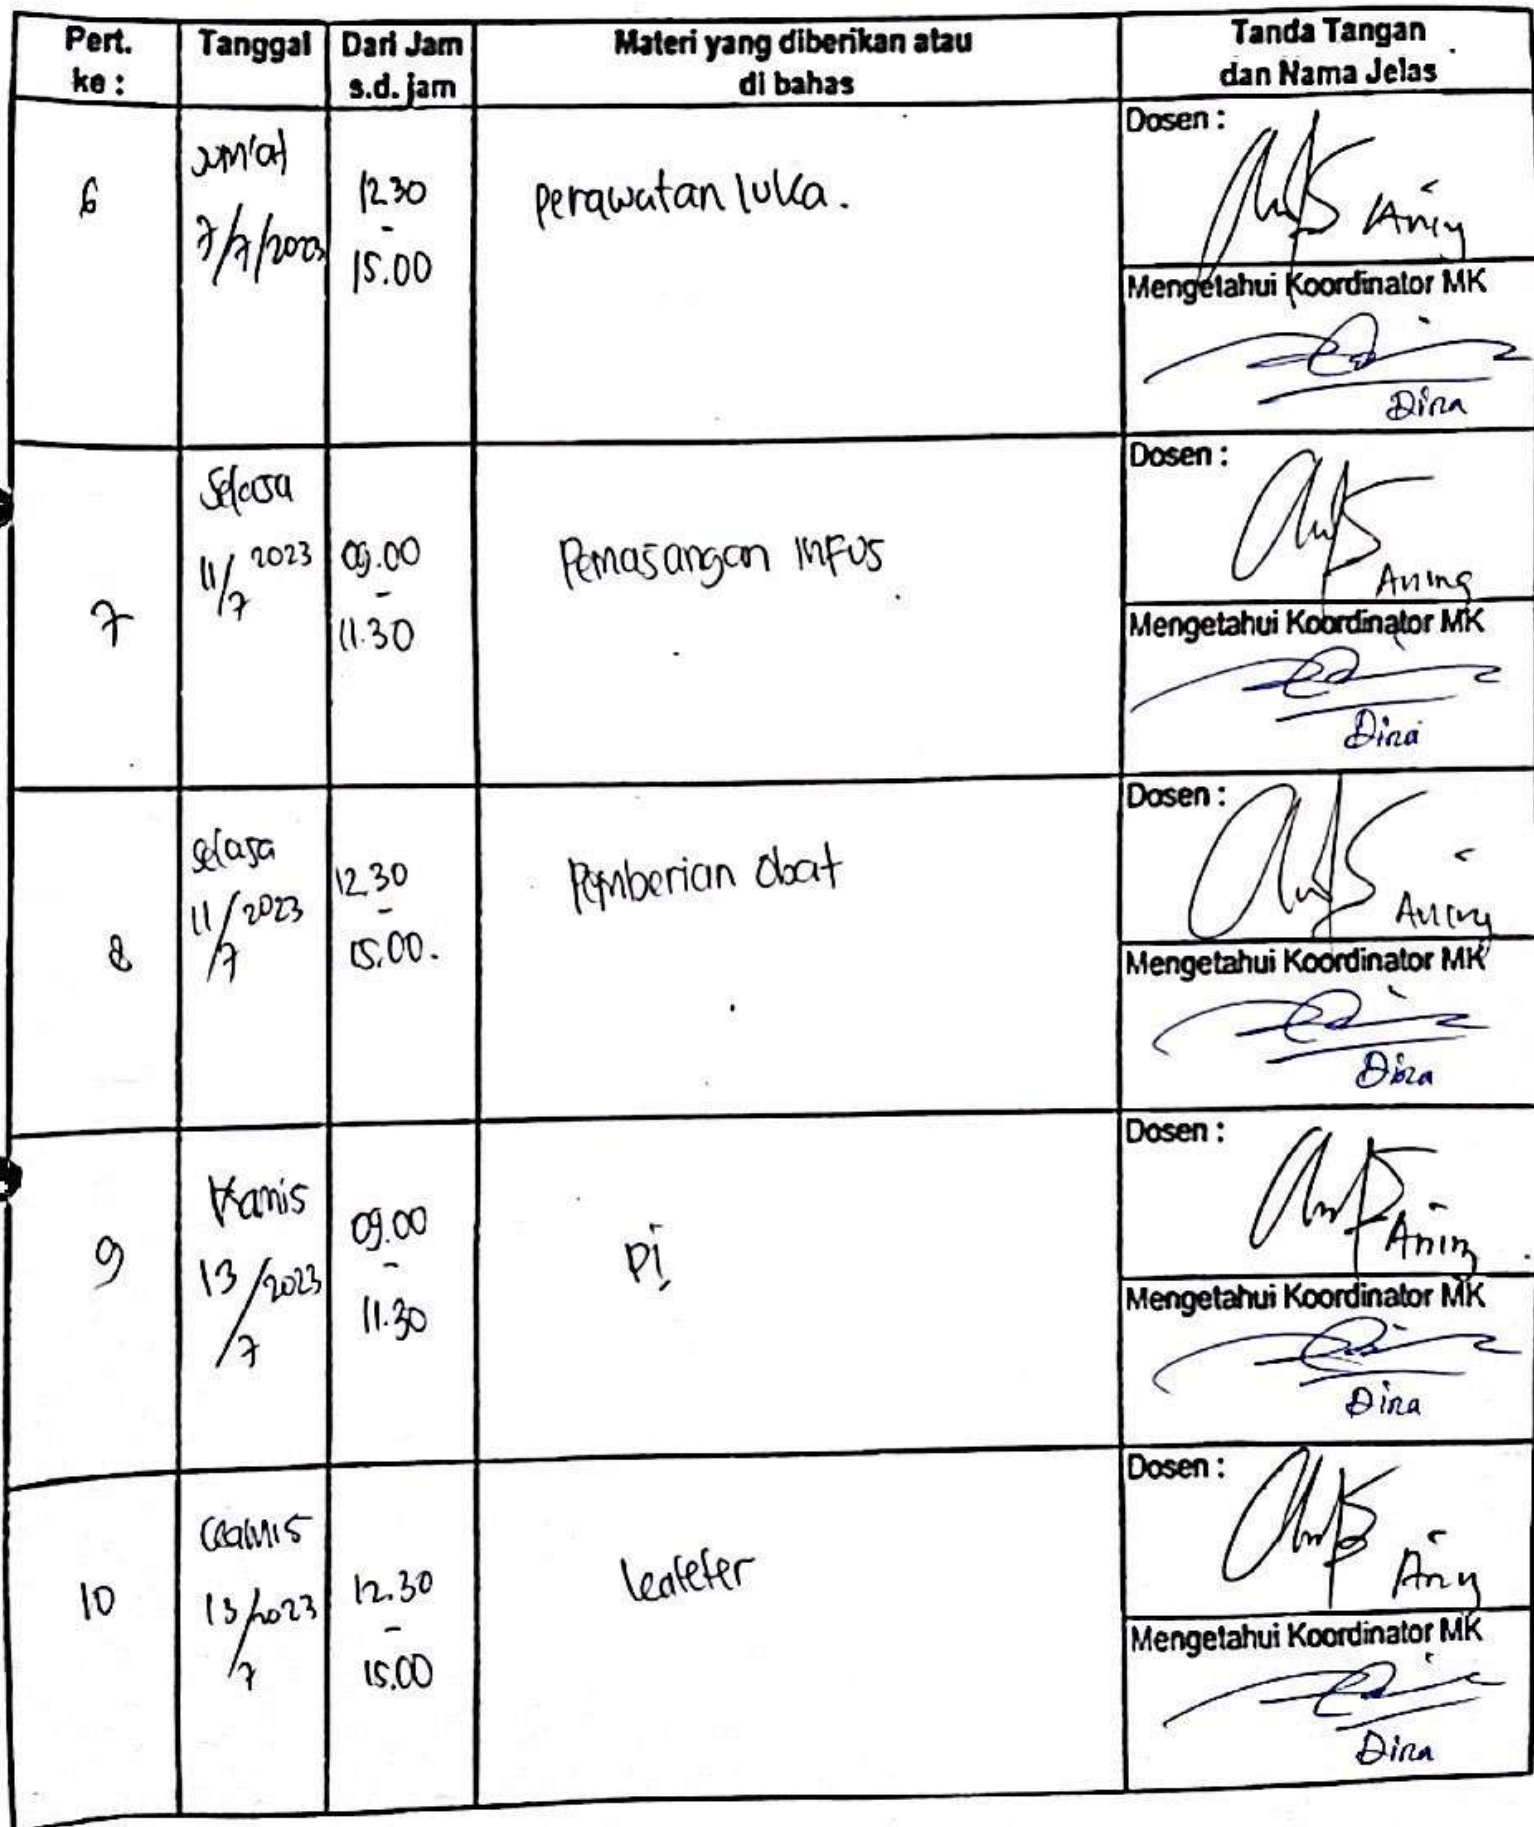 Pert. ke :
Tanggal
Dari Jam s.d. jam
Materi yang diberikan atau di bahas
Tanda Tangan dan Nama Jelas
6
Jum'at
7/7/2023
12.30
-
15.00
perawatan luka.
Dosen :
Aning
Mengetahui Koordinator MK
Dina
7
Selasa
11/7 2023
09.00
-
11.30
Pemasangan infus
Dosen :
Aning
Mengetahui Koordinator MK
Dina
8
Selasa
11/7 2023
12.30
-
15.00.
Pemberian Obat
Dosen :
Aning
Mengetahui Koordinator MK
Dina
9
Kamis
13/7/2023
09.00
-
11.30
Dosen :
Aning
Mengetahui Koordinator MK
Dina
10
Kamis
13/7/2023
12.30
-
15.00
Dosen :
Aning
Mengetahui Koordinator MK
Dina